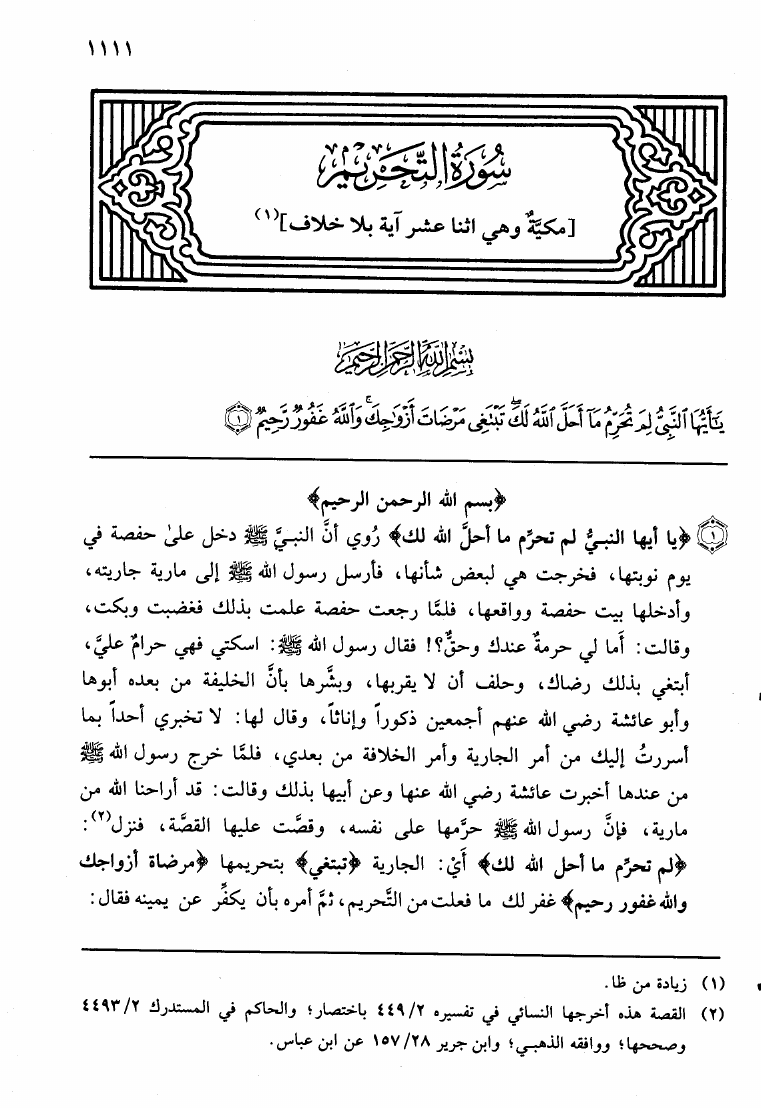 ١١١١
سُورَةُ التَّحْرِيمِ
[مكيَّةٌ وهي اثنا عشر آية بلا خلاف](١)
بِسْمِ اللَّهِ الرَّحْمَٰنِ الرَّحِيمِ
يَٰٓأَيُّهَا ٱلنَّبِىُّ لِمَ تُحَرِّمُ مَآ أَحَلَّ ٱللَّهُ لَكَ ۖ تَبْتَغِى مَرْضَاتَ أَزْوَٰجِكَ ۚ وَٱللَّهُ غَفُورٌ رَّحِيمٌ ١
﴿بسم الله الرحمن الرحيم﴾
١ ﴿يا أيها النبيُّ لم تحرِّم ما أحلَّ الله لك﴾ رُوي أنَّ النبيَّ ﷺ دخل علىٰ حفصة في
يوم نوبتها، فخرجت هي لبعض شأنها، فأرسل رسول الله ﷺ إلى مارية جاريته،
وأدخلها بيت حفصة وواقعها، فلمَّا رجعت حفصة علمت بذلك فغضبت وبكت،
وقالت: أما لي حرمةٌ عندك وحقٌّ؟! فقال رسول الله ﷺ: اسكتي فهي حرامٌ عليَّ،
أبتغي بذلك رضاك، وحلف أن لا يقربها، وبشَّرها بأنَّ الخليفة من بعده أبوها
وأبو عائشة رضي الله عنهم أجمعين ذكوراً وإناثاً، وقال لها: لا تخبري أحداً بما
أسررتُ إليك من أمر الجارية وأمر الخلافة من بعدي، فلمَّا خرج رسول الله ﷺ
من عندها أخبرت عائشة رضي الله عنها وعن أبيها بذلك وقالت: قد أراحنا الله من
مارية، فإنَّ رسول الله ﷺ حرَّمها على نفسه، وقصَّت عليها القصَّة، فنزل(٢):
﴿لم تحرِّم ما أحل الله لك﴾ أيْ: الجارية ﴿تبتغي﴾ بتحريمها ﴿مرضاة أزواجك
والله غفور رحيم﴾ غفر لك ما فعلت من التَّحريم، ثمَّ أمره بأن يكفِّر عن يمينه فقال:
(١) زيادة من ظا.
(٢) القصة هذه أخرجها النسائي في تفسيره ٤٤٩/٢ باختصار؛ والحاكم في المستدرك ٤٤٩٣/٢
وصححها؛ ووافقه الذهبي؛ وابن جرير ١٥٧/٢٨ عن ابن عباس.